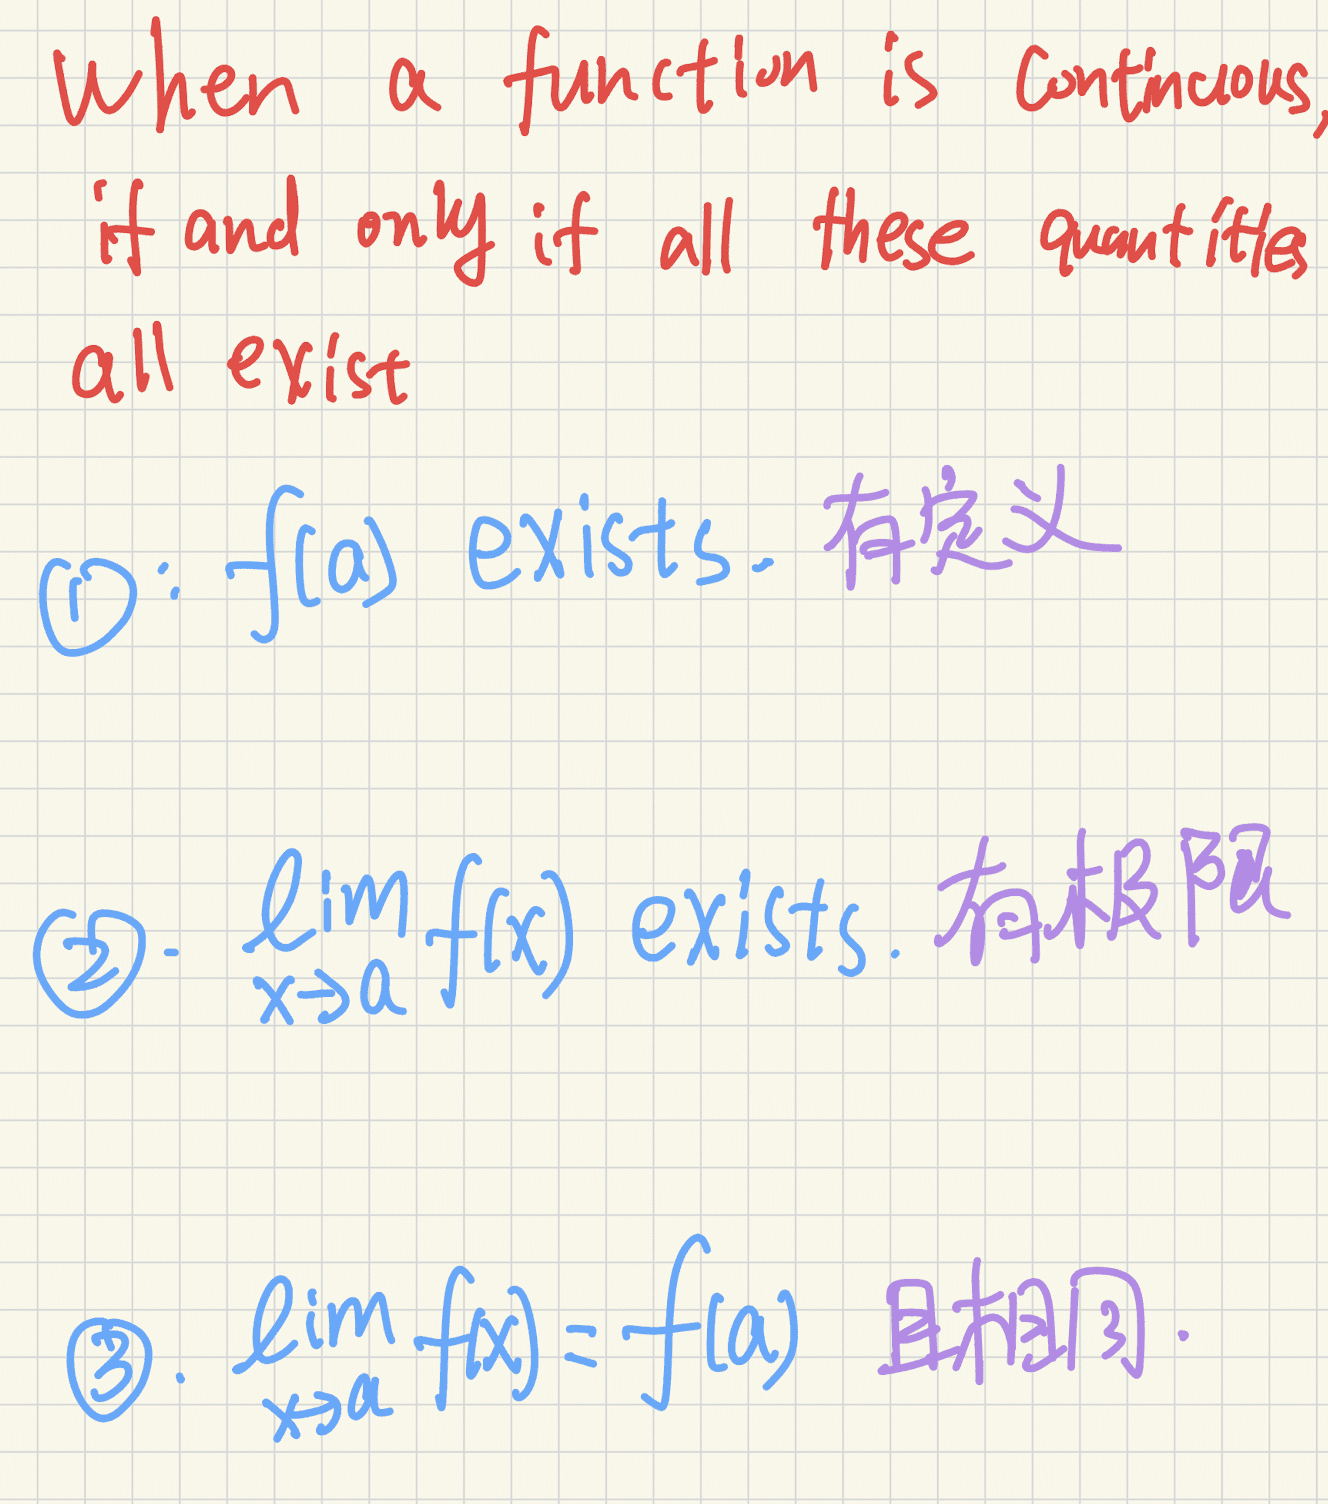 When a function is continuous,
if and only if all these quantities
all exist
①: f(a) exists. 有定义
②. lim f(x) exists. 有极限
x→a
③. lim f(x) = f(a) 且相同.
x→a